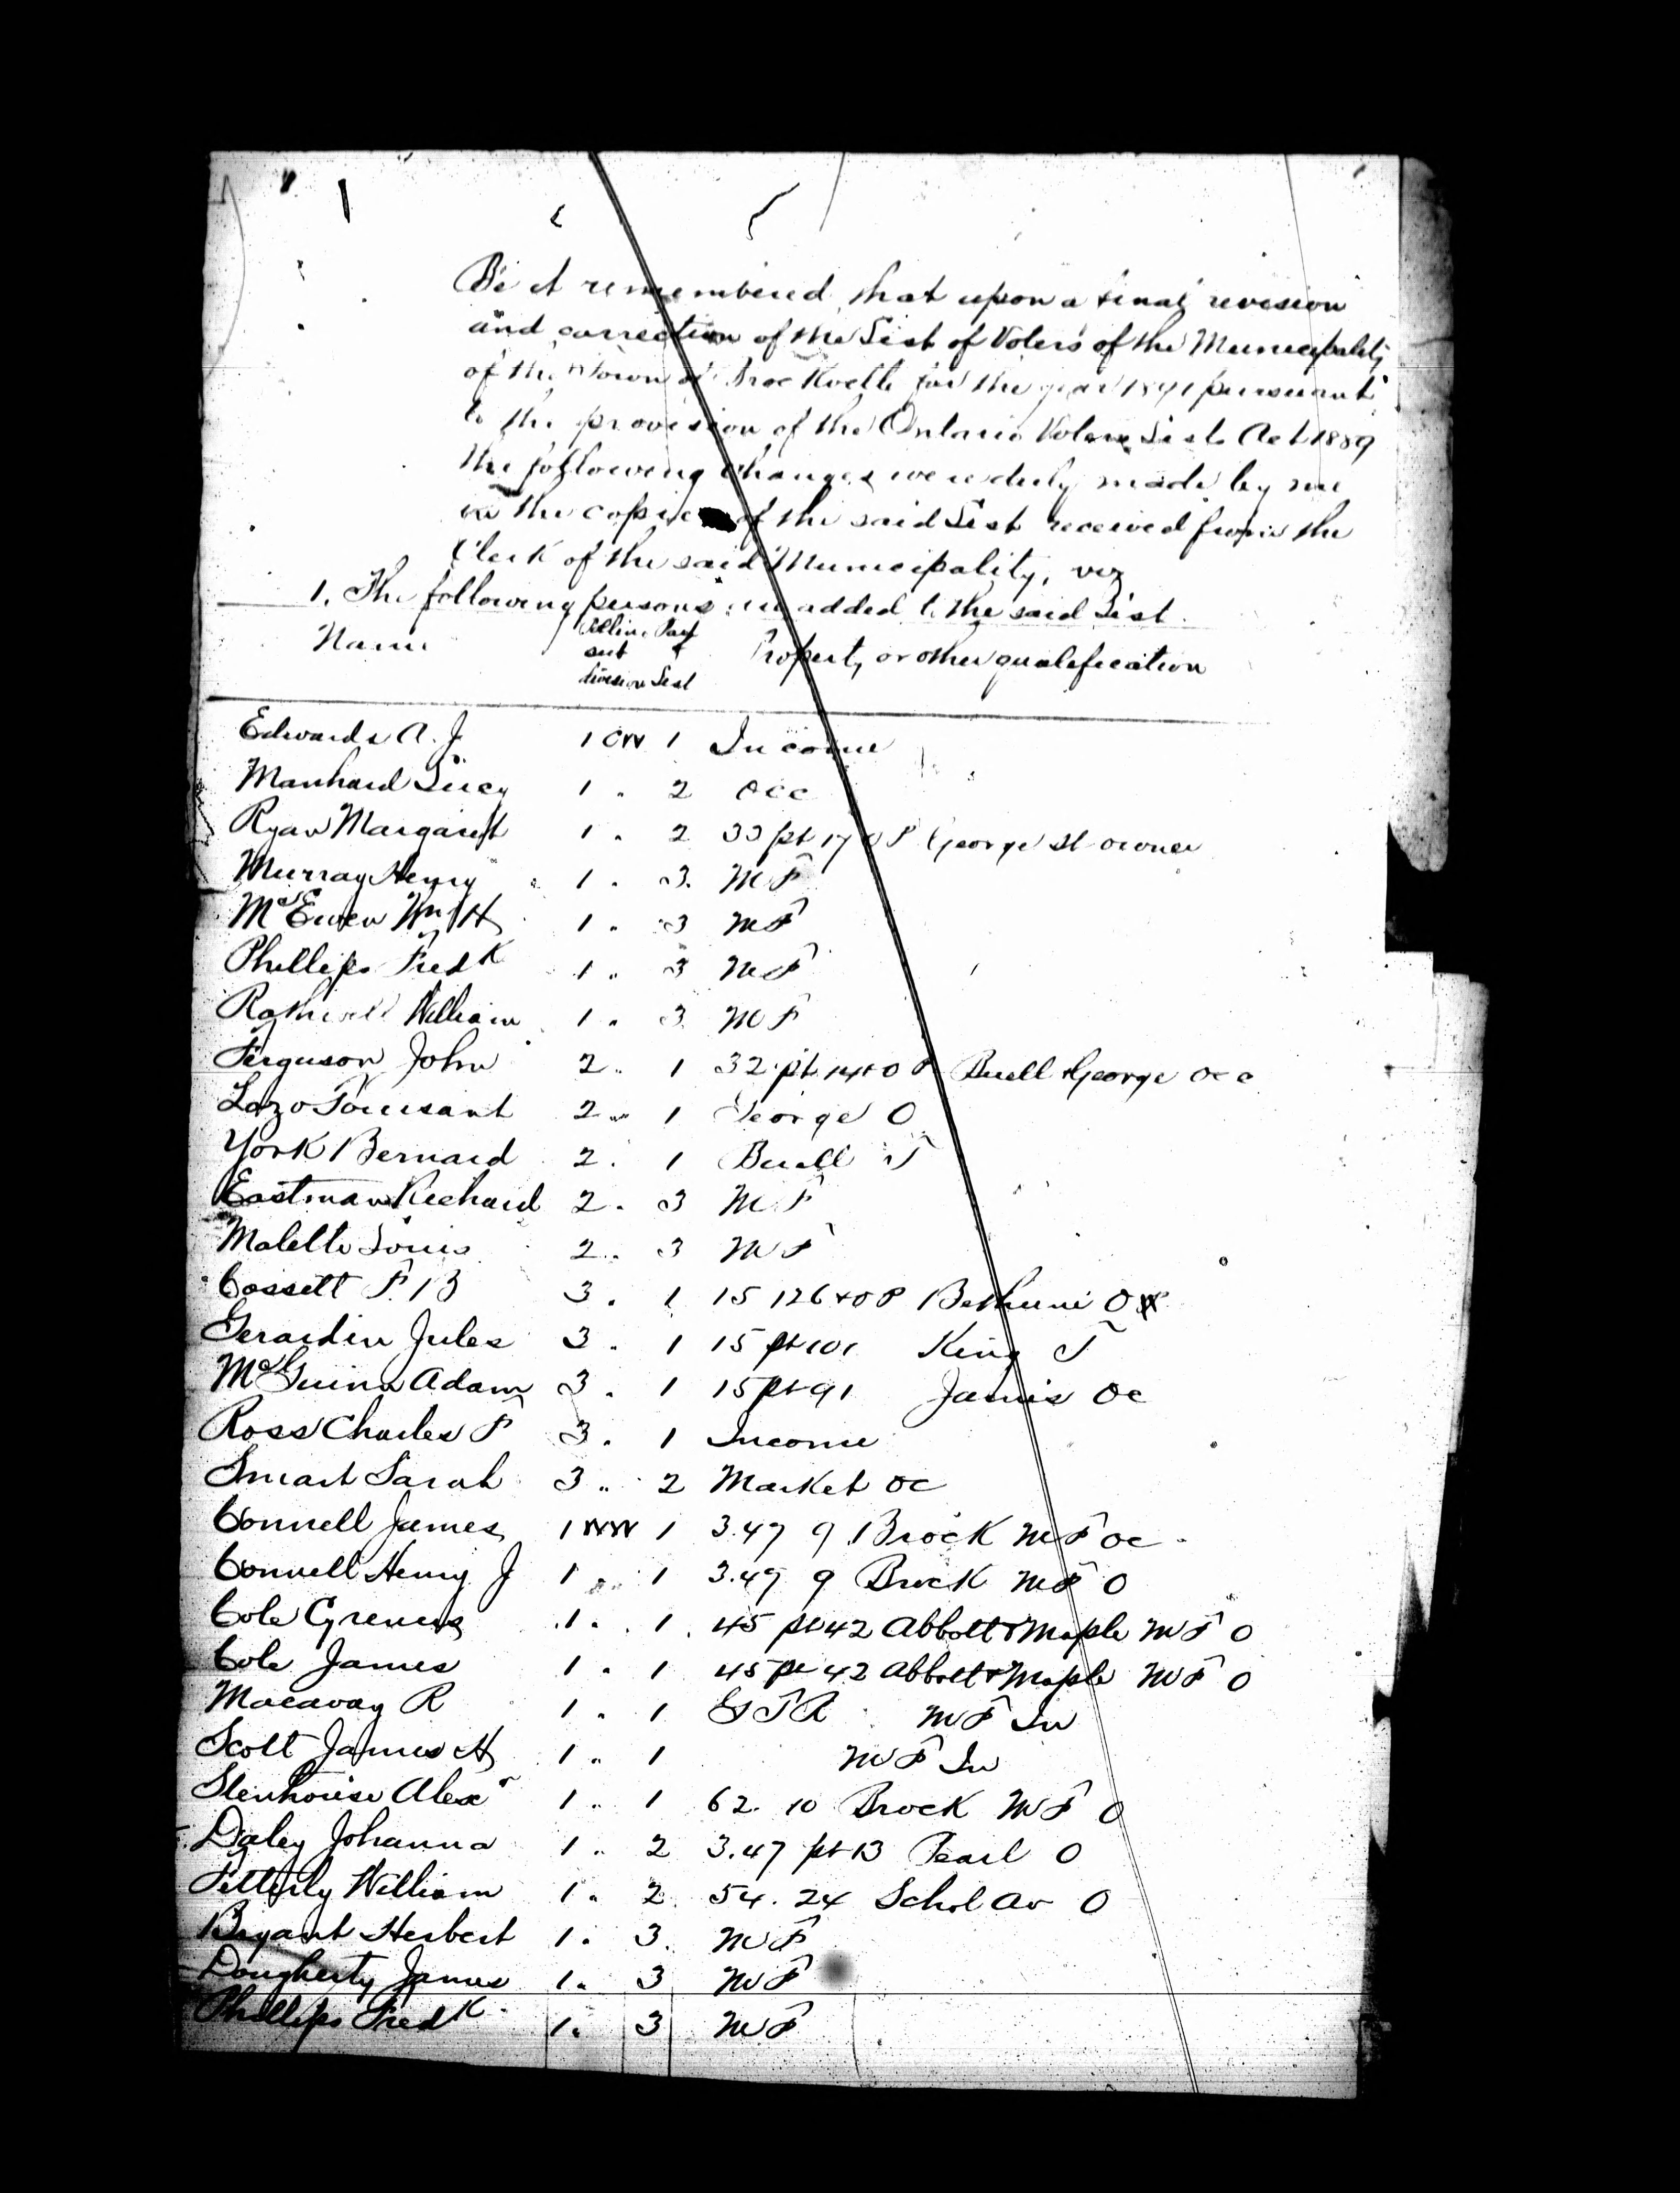 Be it remembered that upon a final revision
and correction of the List of Voters of the Municipality
of the Town of Brockville for the year 1891 pursuant
to the provision of the Ontario Voters Lists Act 1889
the following changes were duly made by me
in the copies of the said List received from the
Clerk of the said Municipality, viz
1. The following persons are added to the said List.
Name Polling sub division Part of List Property or other qualification
Edwards A. J 1 CW 1 Income
Manhard Lucy 1 " 2 Occ
Ryan Margaret 1 " 2 33 pt 17 O P George St owner
Murray Henry 1 " 3. M F
McEwen Wm H 1 " 3 M F
Phillips Fredk 1 " 3 M F
William 1 " 3 M F
Ferguson John 2 " 1 32 pt 14 + O P Buell + George Occ
Lazo Tousant 2 " 1 George O
York Bernard 2 " 1 Buell T
Eastman Richard 2 " 3 M F
Malette Louis 2 " 3 M F
Cossett F B 3 " 1 15 126 + O P Bethune O
Gerardin Jules 3 " 1 15 pt 101 King T
McGuinn Adam 3 " 1 15 pt 91 James Oc
Ross Charles F 3 " 1 Income
Smart Sarah 3 " 2 Market Oc
Connell James 1 WW 1 3.47 9 Brock M F Oc
Connell Henry J 1 " 1 3.47 9 Brock M F O
Cole 1 " 1 45 pt 42 Abbott & Maple M F O
Cole James 1 " 1 45 pt 42 Abbott & Maple M F O
Macavay R 1 " 1 G T R M F In
Scott James H 1 " 1 M F In
Stenhouse Alexr 1 " 1 62. 10 Brock M F O
Daley Johanna 1 " 2 3.47 pt 13 Pearl O
Fetterly William 1 " 2 54. 24 Schol Av O
Bryant Herbert 1 " 3. M F
Dougherty James 1 " 3 M F
Phillips Fredk 1 " 3 M F